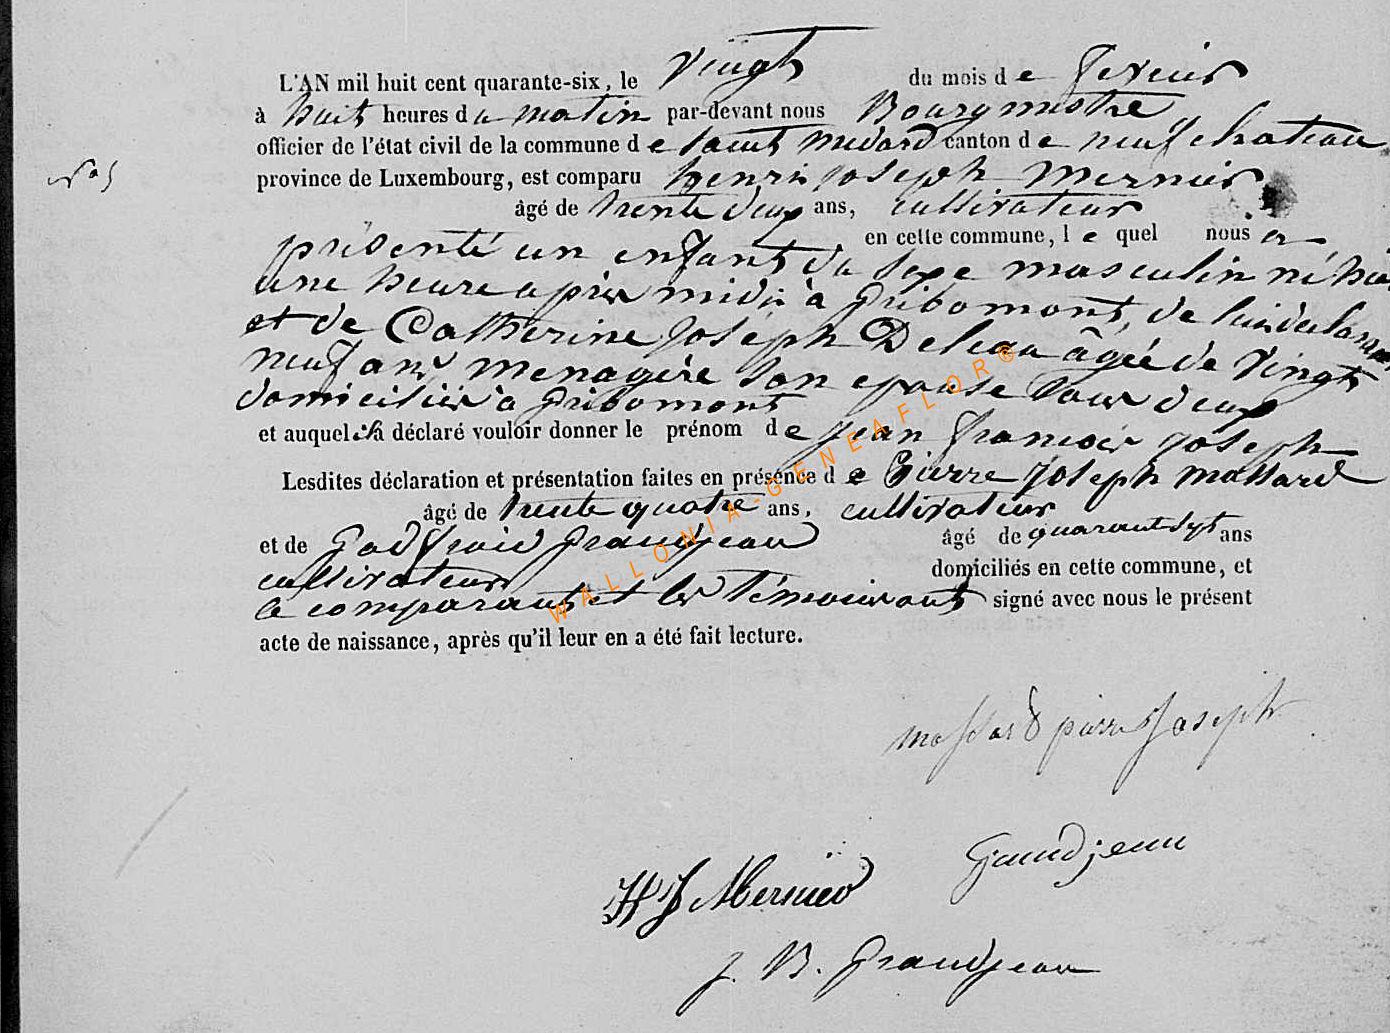 L'AN mil huit cent quarante-six, le vingt du mois de fevrier
à huit heures du matin par-devant nous Bourgmestre
officier de l'état civil de la commune de saint medard canton de neufchateau
N° 5
province de Luxembourg, est comparu henri joseph mernier
âgé de trente deux ans, cultivateur
en cette commune, le quel nous a
présenté un enfant du sexe masculin né hier
une heure après midi à gribomont, de lui déclarant
et de Catherine joséph Deleau âgée de vingt
neuf ans menagère son epouse tous deux
domiciliés à gribomont
et auquel il a déclaré vouloir donner le prénom de jean françois joseph
Lesdites déclaration et présentation faites en présence de Pierre joseph massard
âgé de trente quatre ans, cultivateur
et de Godfroid grandjean âgé de quarante sept ans
cultivateur domiciliés en cette commune, et
le comparant et les témoins ont signé avec nous le présent
acte de naissance, après qu'il leur en a été fait lecture.
massard pierre Joseph
Grandjean
HJ Mernier
J. B. Grandjean
WALLONIA-GENEAFLOR®